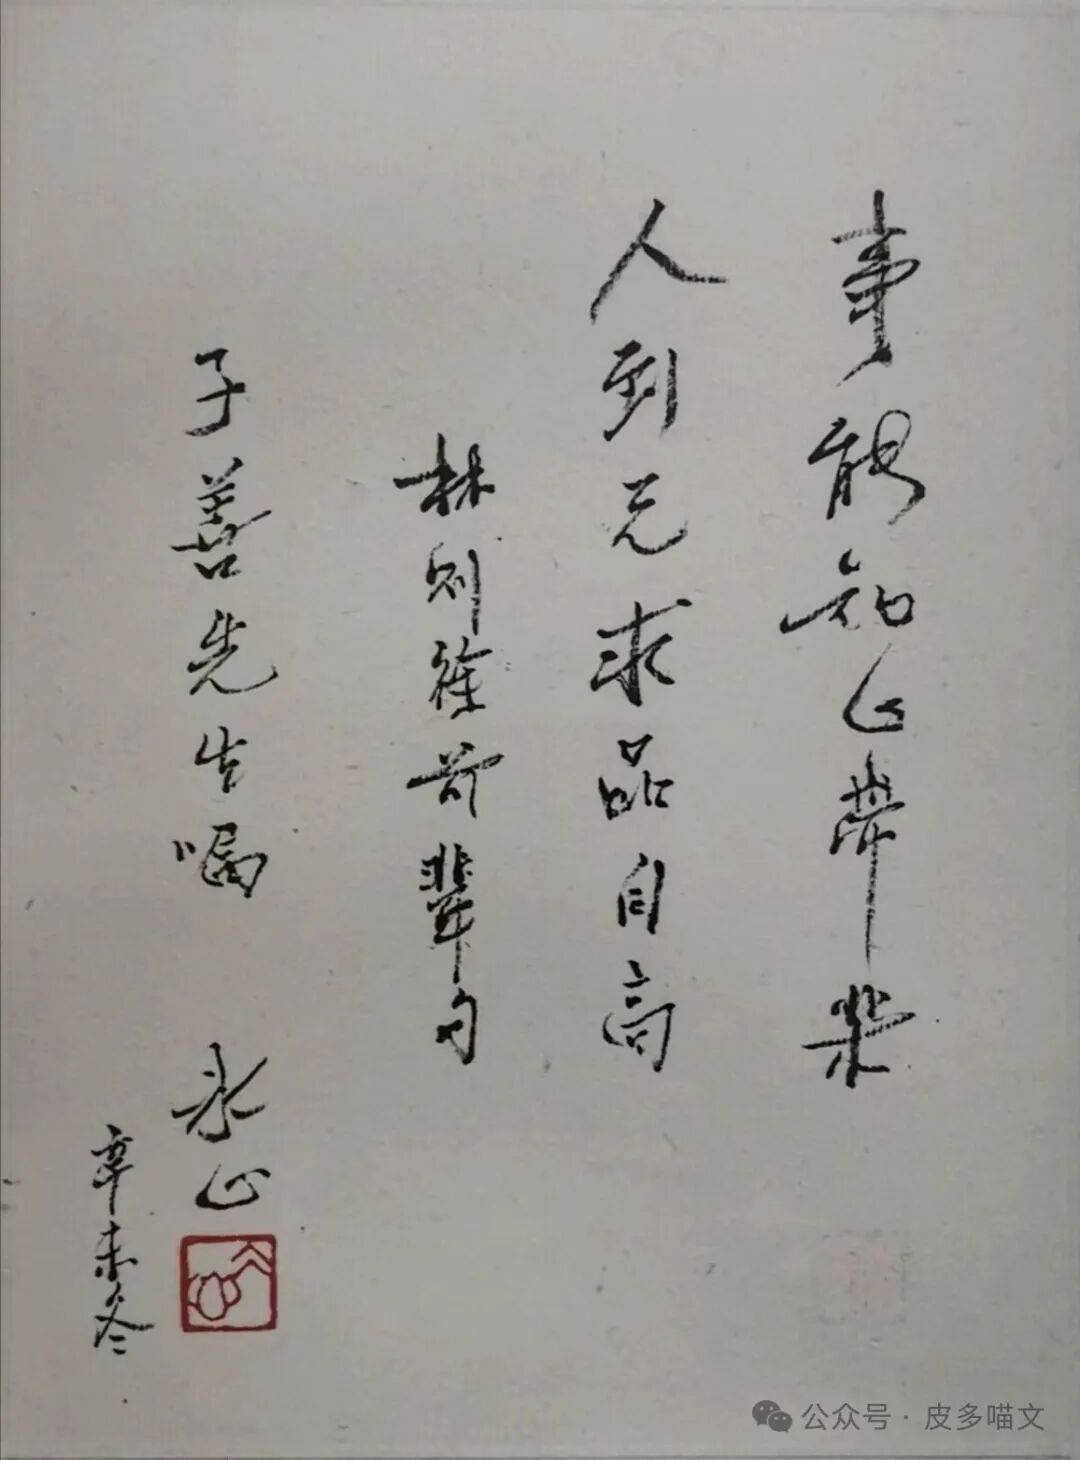 事能知足常樂
人到无求品自高
林则徐前輩句
子善先生嘱
冰心
辛未冬
公众号·皮多喵文